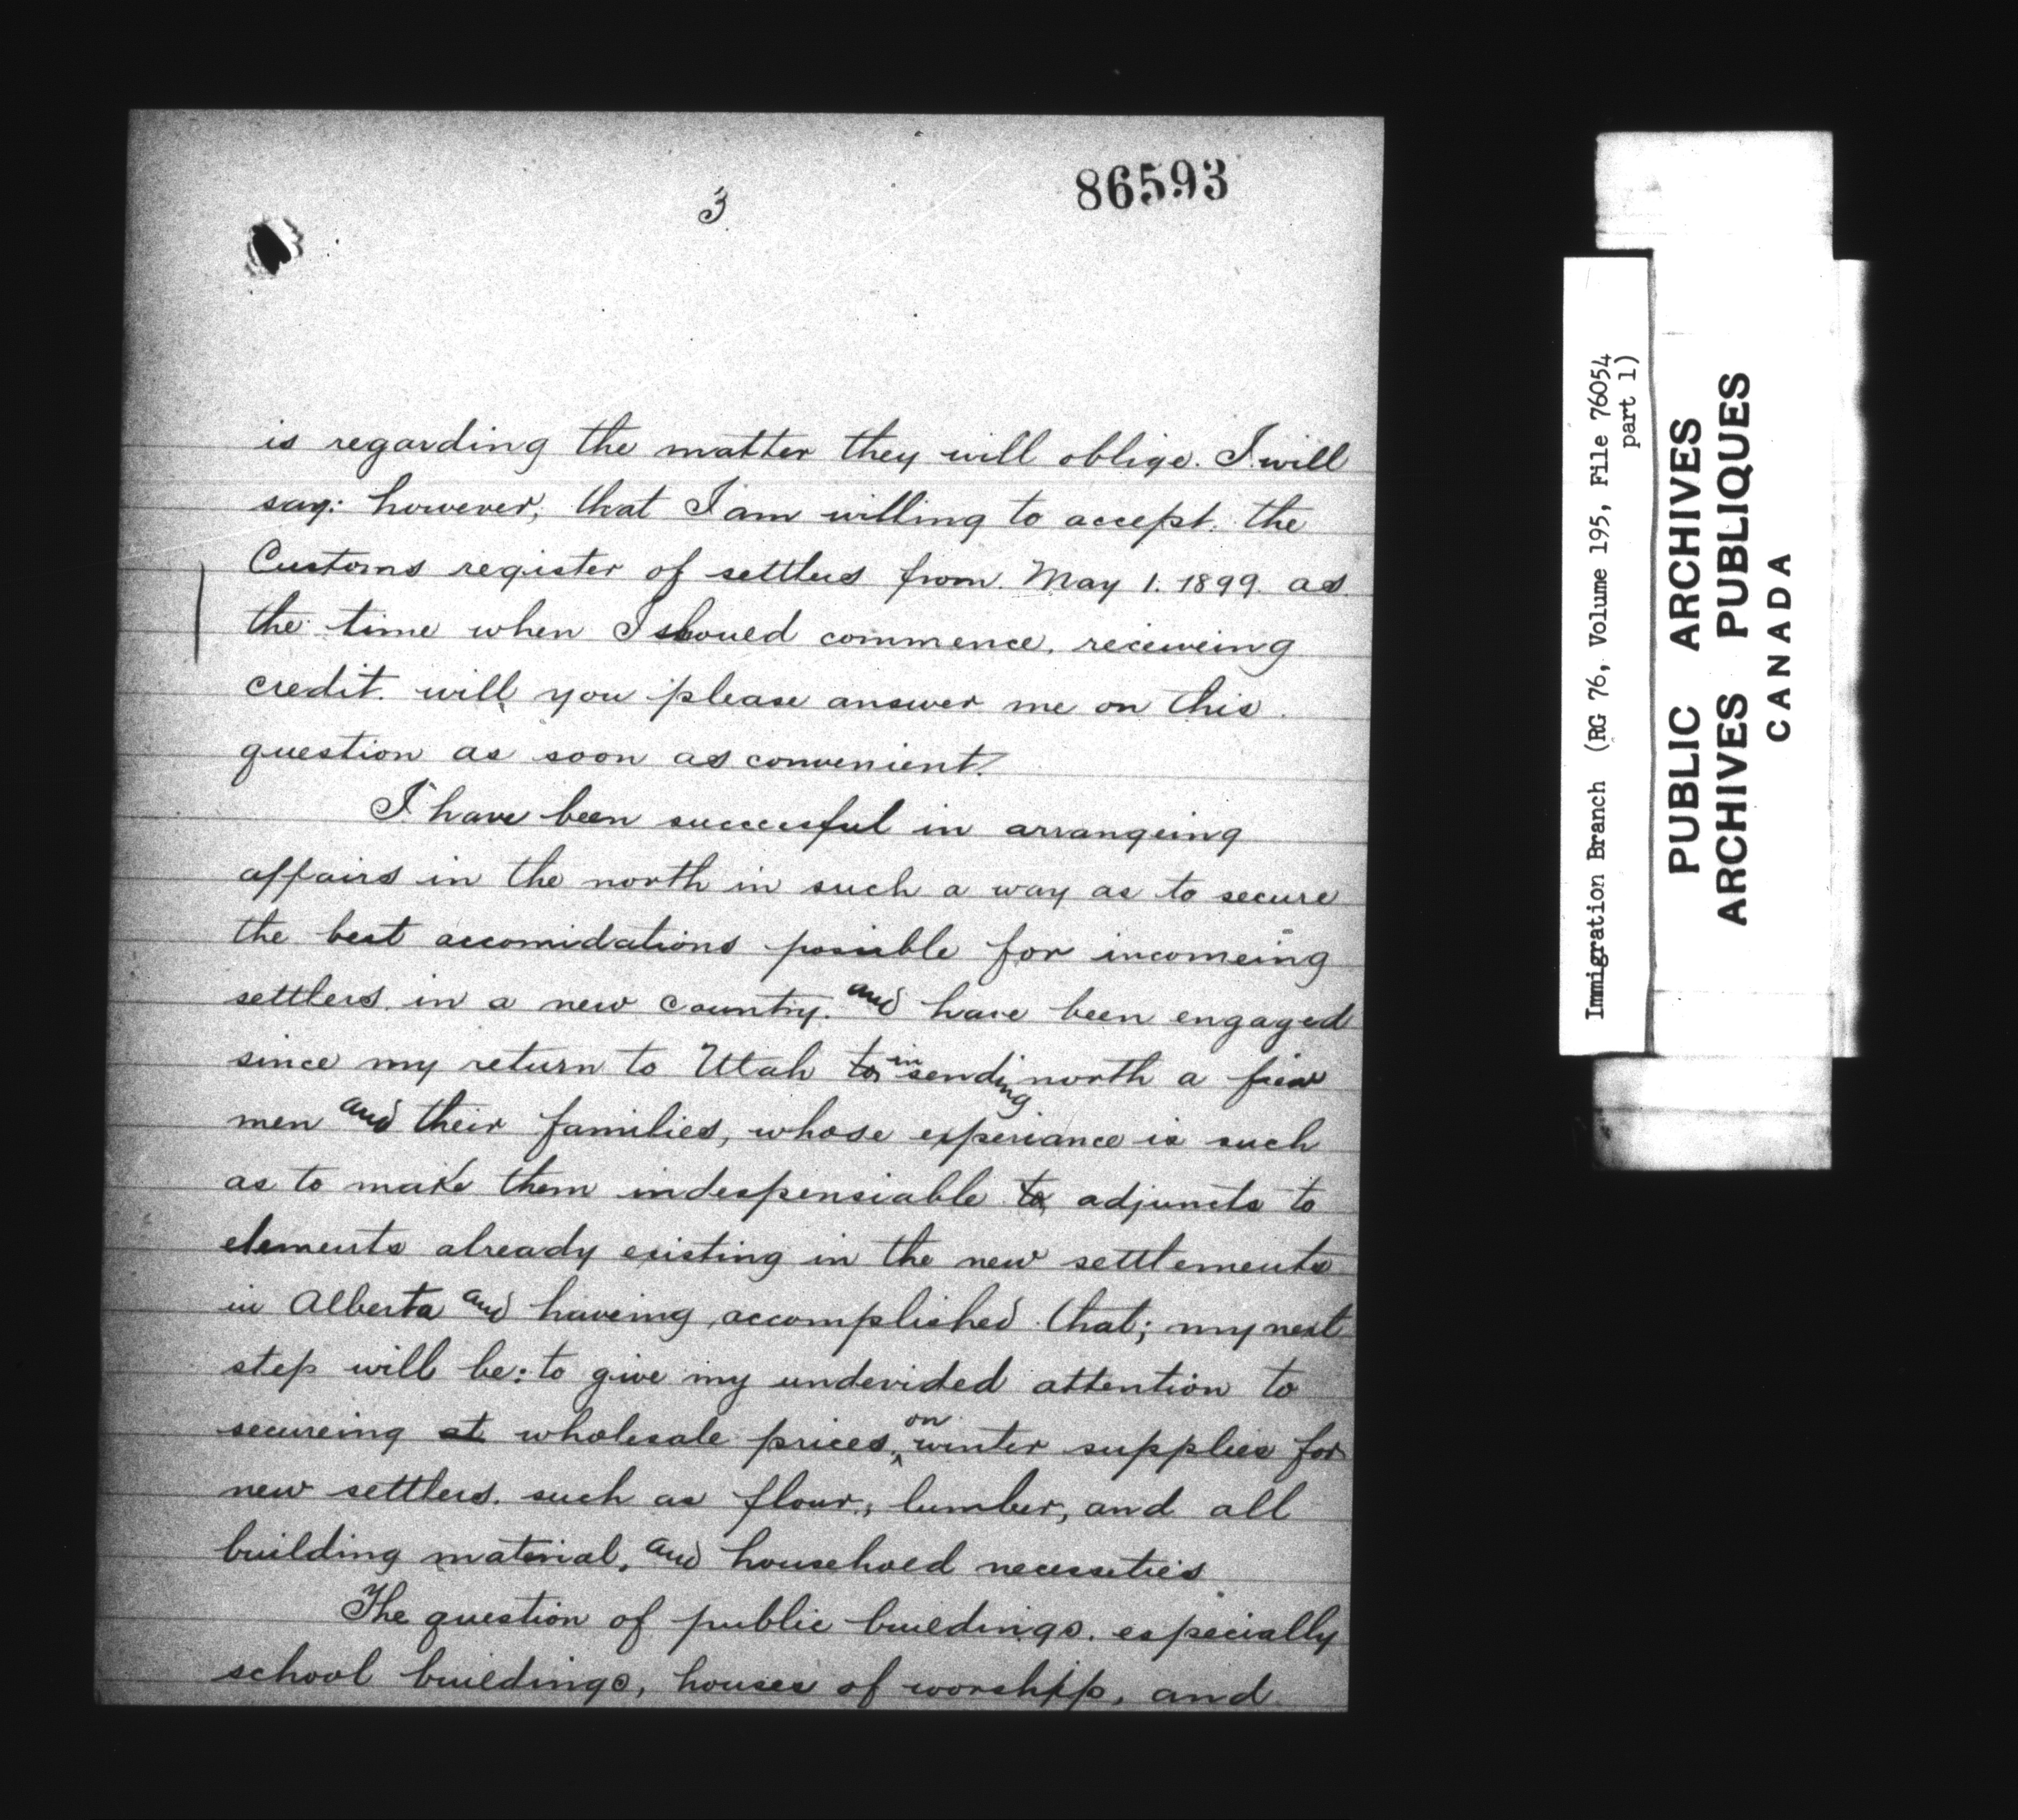 86593
3
is regarding the matter they will oblige. I will
say: however, that I am willing to accept. the
Customs register of settlers from. May 1. 1899. as
the time when I should commence. receiveing
credit. will you please answer me on this.
question as soon as convenient.
I have been successful in arrangeing
affairs in the north in such a way as to secure
the best accomidations possible for incomeing
settlers in a new country. and have been engaged
since my return to Utah to in sending north a few
men and their families, whose experiance is such
as to make them indespensiable to adjuncts to
elements already existing in the new settlements
in Alberta and haveing accomplished that; my next
step will be: to give my undevided attention to
secureing at wholesale prices, on winter supplies for
new settlers. such as flour, lumber, and all
building material, and household necessities
The question of public buildings. especially
school buildings, houses of worship, and
Immigration Branch (RG 76, Volume 195, File 76054
part 1)
PUBLIC ARCHIVES
ARCHIVES PUBLIQUES
CANADA